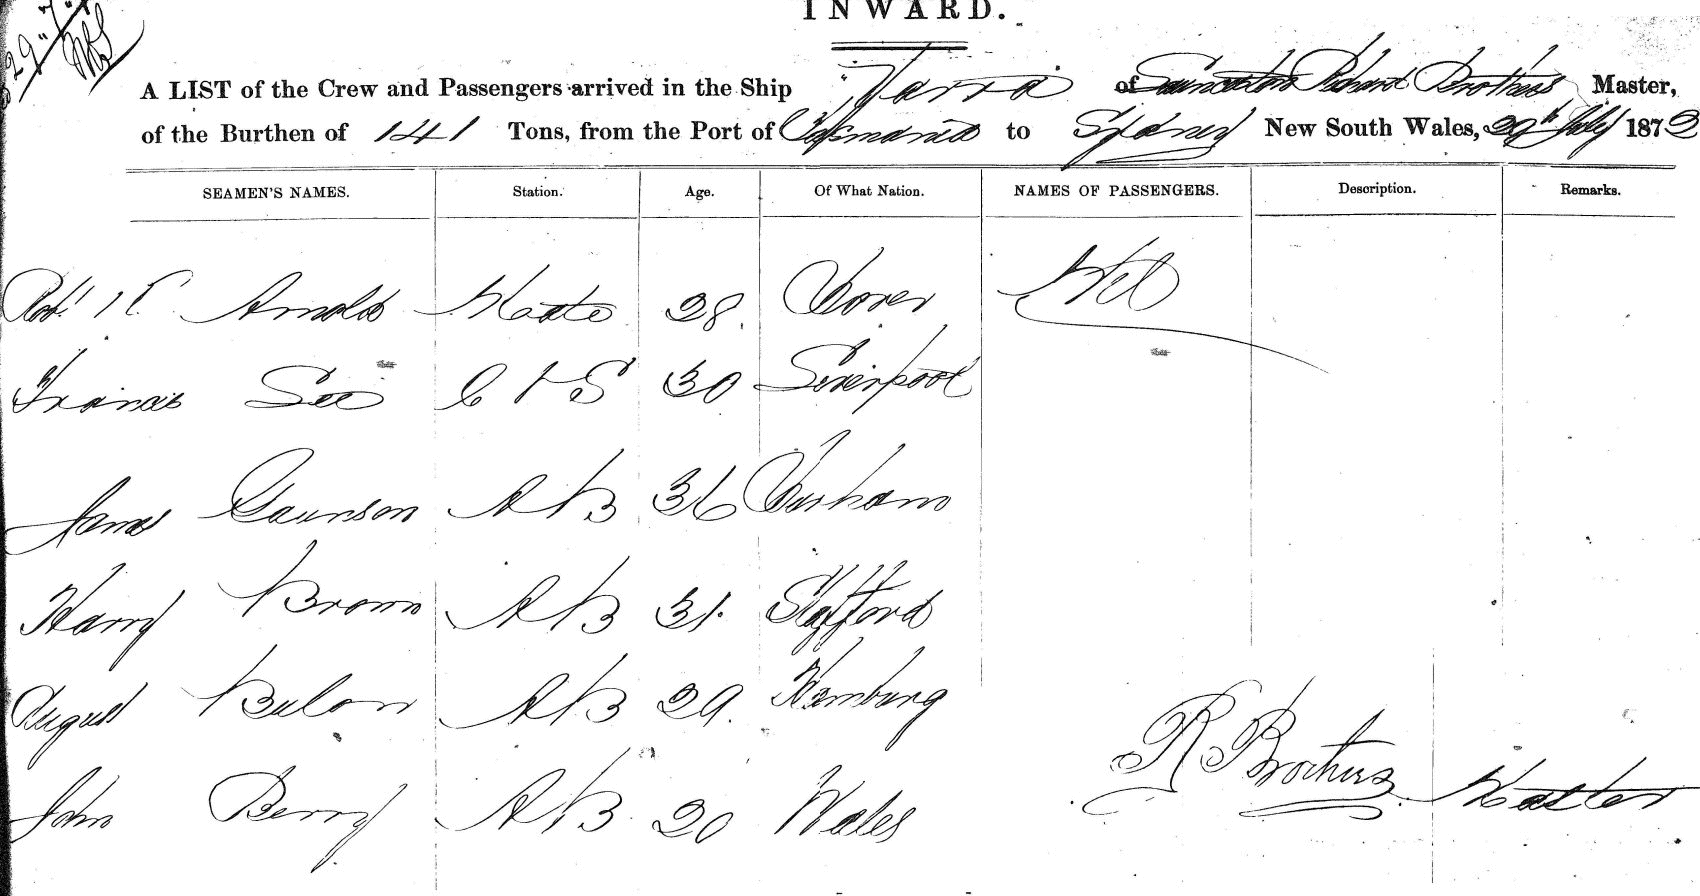 29.7.
INWARD.
A LIST of the Crew and Passengers arrived in the Ship "Yarra of Launceston Richard Brothers Master,
of the Burthen of 141 Tons, from the Port of Tasmania to Sydney New South Wales, 29th July 1872
SEAMEN'S NAMES. Station. Age. Of What Nation. NAMES OF PASSENGERS. Description. Remarks.
Robt Arnold Mate 28. Dover Nil
Francis See C & S 30 Liverpool
James Gaunson AB 36 Durham
Harry Brown AB 31. Stafford
August AB 29. Hamburg
John Berry AB 20 Wales
R Brothers Master